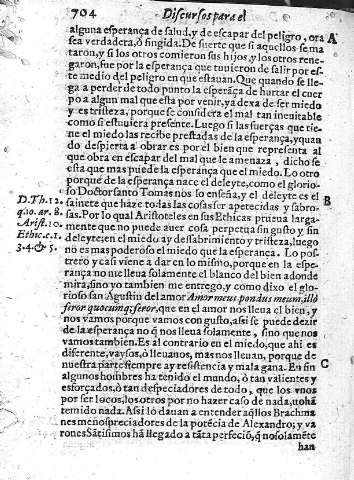 704 Discursos para el
alguna esperança de salud, y de escapar del peligro, ora A
sea verdadera, ò fingida. De suerte que si aquellos se ma
taron, y si los otros comieron sus hijos, y los otros rene
garon, fue por la esperança que tuuieron de salir por es-
te medio del peligro en que estauan. Que quando se lle-
ga a perder de todo punto la esperãça de hurtar el cuer
po a algun mal que esta por venir, ya dexa de ser miedo
y es tristeza, porque se considera el mal tan ineuitable
como si estuuiera presente. Luego si las fuerças que tie-
ne el miedo las recibe prestadas de la esperança, y quan
do despierta a obras es por el bien que representa al
que obra en escapar del mal que le amenaza, dicho se
esta que mas puede la esperança que el miedo. Lo otro
porque de la esperança nace el deleyte, como el glorio-
D.Th.12. so Doctor santo Tomas nos lo enseña, y el deleyte es el B
q40.ar.8. sainete que haze todas las cosas ser apetecidas y sabro-
Arist.10. sas. Por lo qual Aristoteles en sus Ethicas prueua larga-
Ethic.c.1. mente que no puede auer cosa perpetua sin gusto y sin
3.4.& 5. deleyte; en el miedo ay dessabrimiento y tristeza, luego
no es mas poderoso el miedo que la esperança. Lo pos
trero y casi viene a dar en lo mismo, porque en la espe
rança no me lleua solamente el blanco del bien adonde
mira, sino yo tambien me entrego, y como dixo el glo-
rioso san Agustin del amor Amor meus pondus meum, illò
feror quocumq; feror, que en el amor nos lleua el bien, y
nos vamos porque vamos con gusto, assi se puede dezir
de la esperança no q̃ nos lleua solamente, sino que nos
vamos tambien. Es al contrario en el miedo, que ahi es
diferente, vays os, ò lleuanos, mas nos lleuan, porque de
nuestra parte siempre ay resistencia y mala gana. En fin C
algunos hombres ha tenido el mundo, ò tan valientes y
esforçados, ò tan despreciadores de todo, que los vnos
por ser locos, los otros por no hazer caso de nada, no hã
temido nada. Assi lo dauan a entender aq̃llos Brachma
nes menospreciadores de la potẽcia de Alexandro; y va
rones Sãtissimos hã llegado a tãta perfeciõ, q̃ no solamẽte
han